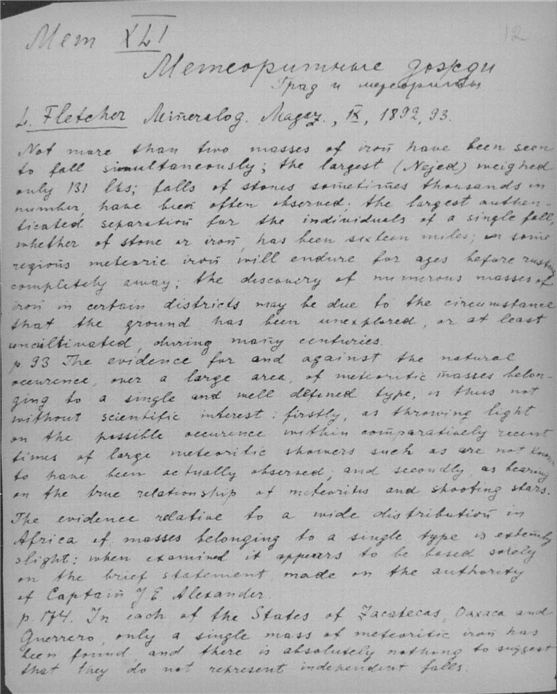 12
Мет XLI
Метеоритные дожди
Град и метеориты
L. Fletcher Mineralog. Magaz., IX, 1892, 93.
Not more than two masses of iron have been seen
to fall simultaneously; the largest (Nejed) weighed
only 131 lbs; falls of stones sometimes thousands in
number, have been often observed; the largest authen-
ticated separation for the individuals of a single fall,
whether of stone or iron, has been sixteen miles; in some
regions meteoric iron will endure for ages before rusting
completely away; the discovery of numerous masses of
iron in certain districts may be due to the circumstance
that the ground has been unexplored, or at least
uncultivated, during many centuries.
p 93 The evidence for and against the natural
occurence, over a large area, of meteoritic masses belon-
ging to a single and well defined type, is thus not
without scientific interest: firstly, as throwing light
on the possible occurence within comparatively recent
times of large meteoritic showers such as are not known
to have been actually observed; and secondly, as bearing
on the true relationship of meteorites and shooting stars.
The evidence relative to a wide distribution in
Africa of masses belonging to a single type is extremely
slight: when examined it appears to be based solely
on the brief statement made on the authority
of Captain J E Alexander.
p. 174. In each of the States of Zacatecas, Oaxaca and
Guerrero, only a single mass of meteoritic iron has
been found and there is absolutely nothing to suggest
that they do not represent independent falls.